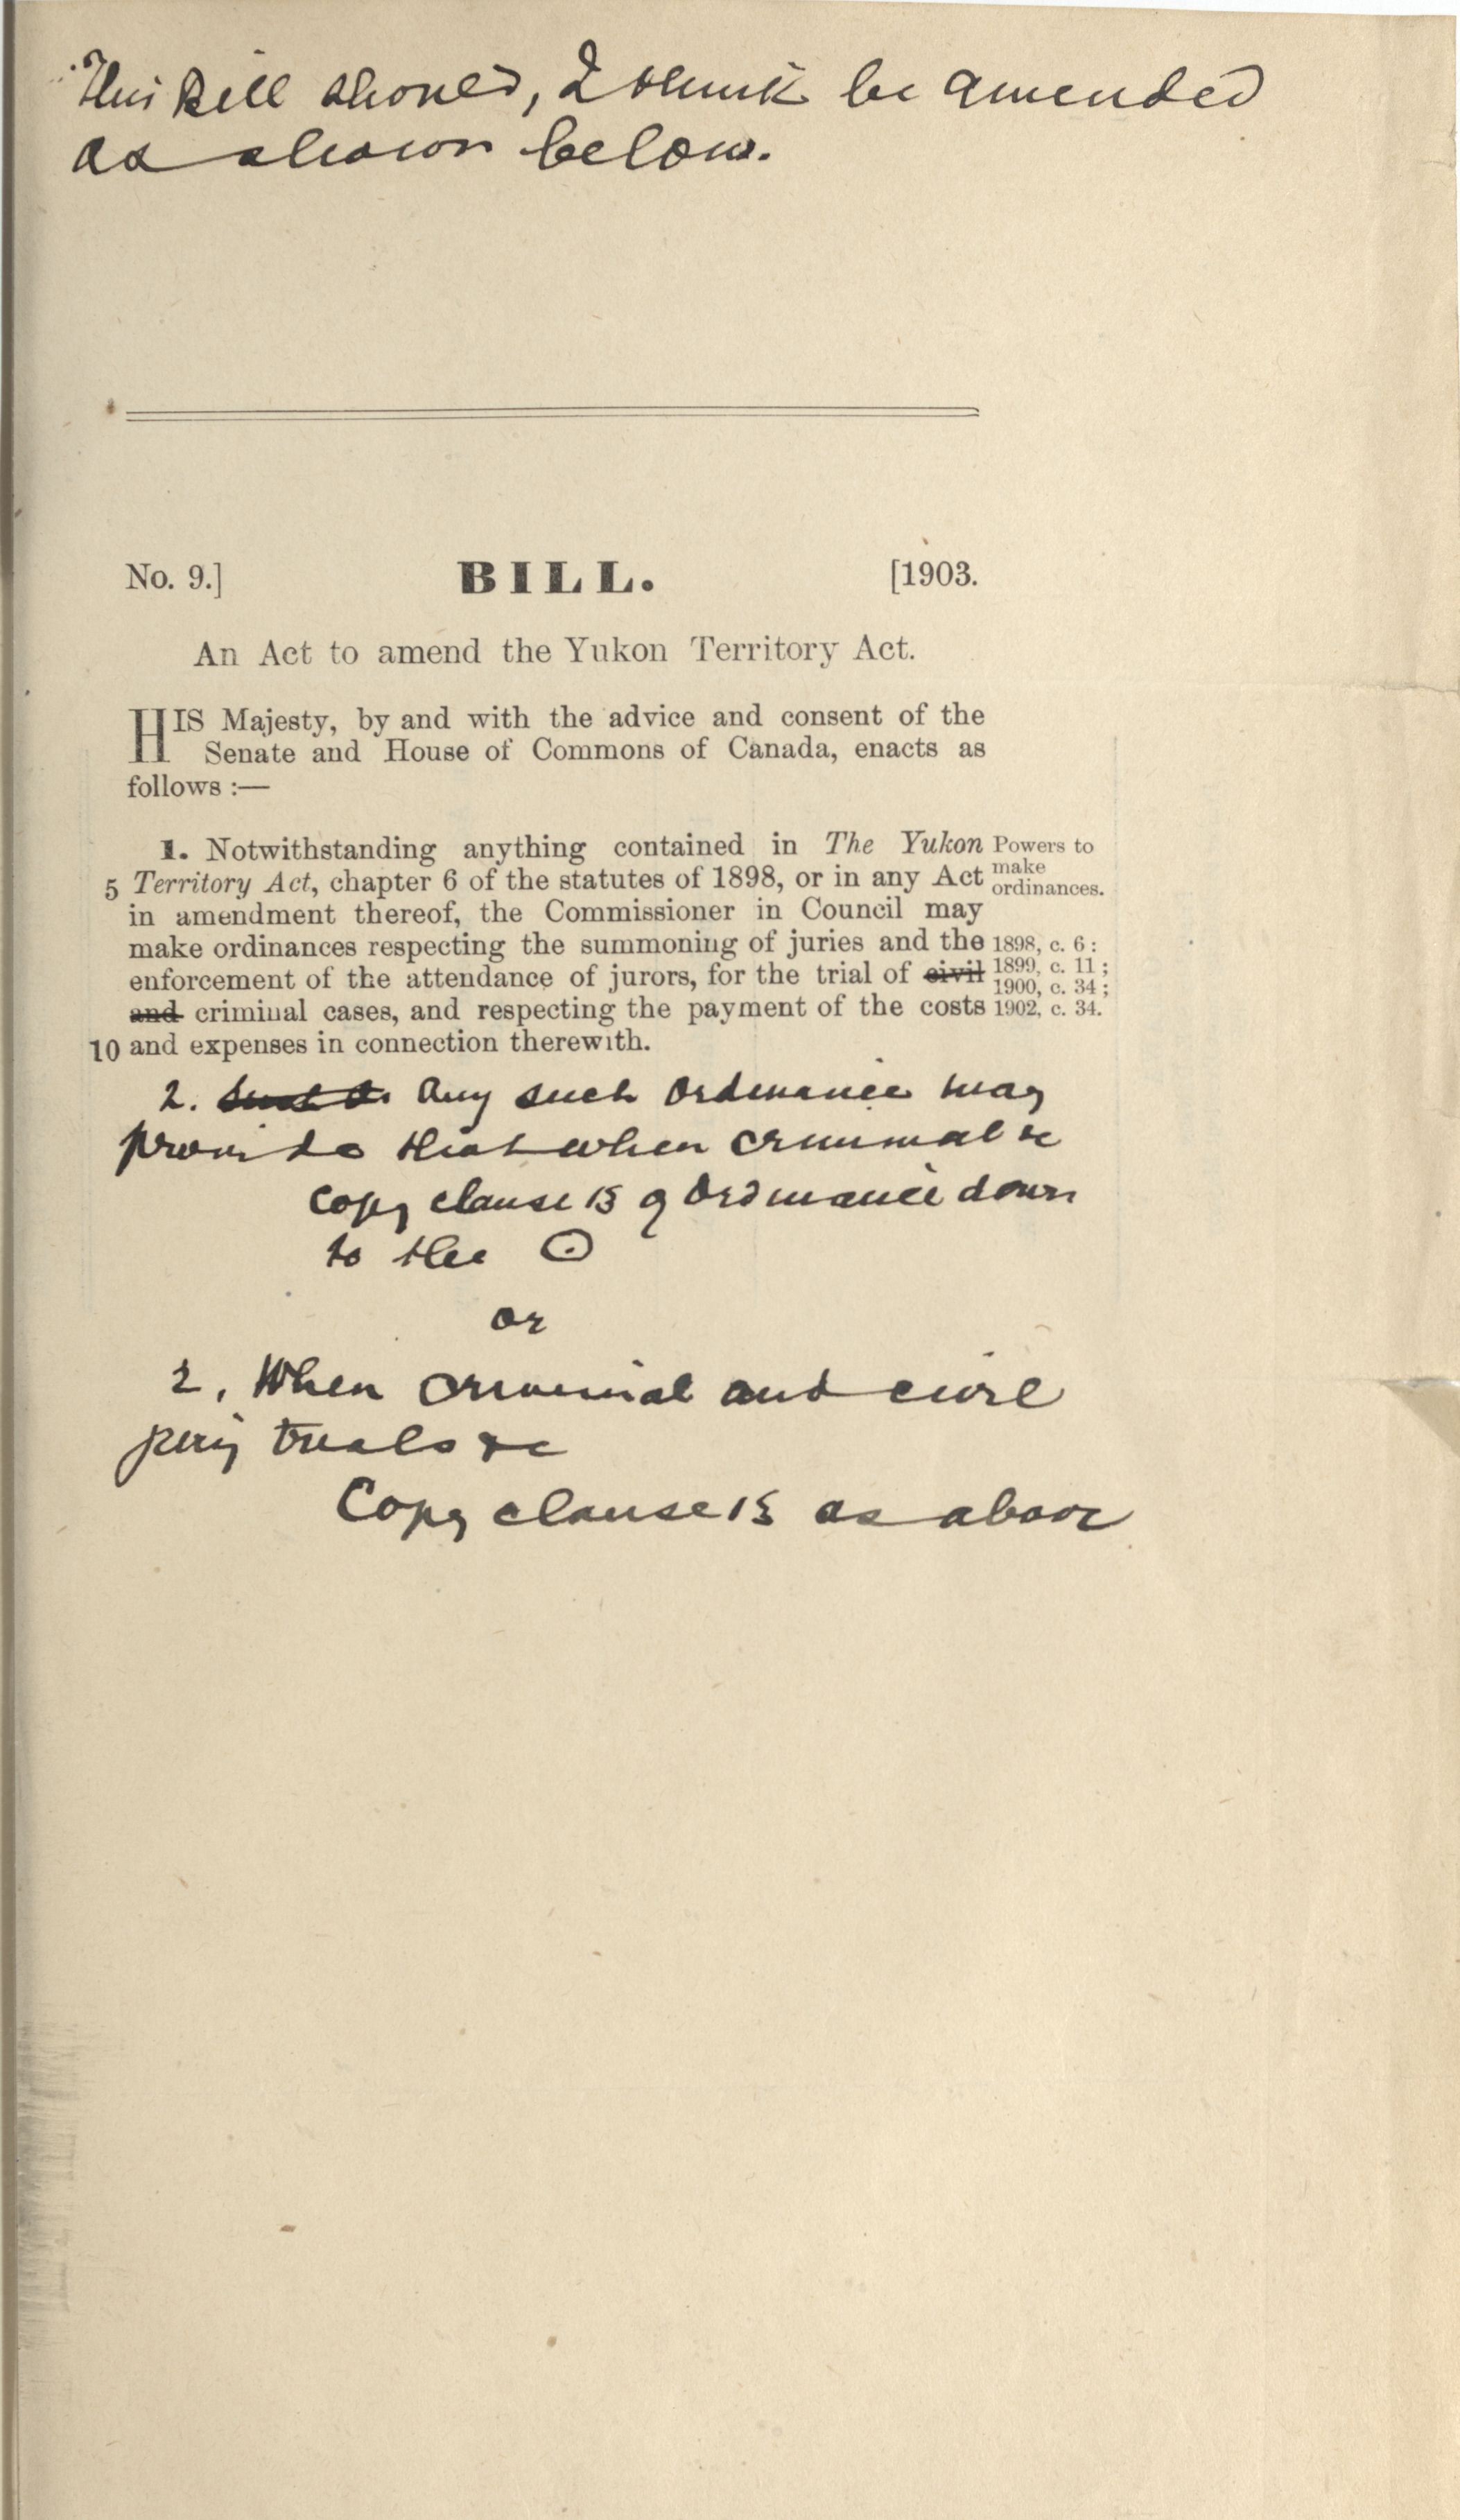 This Bill should, I think be amended
as shown below.
No. 9.] BILL. [1903.
An Act to amend the Yukon Territory Act.
HIS Majesty, by and with the advice and consent of the
Senate and House of Commons of Canada, enacts as
follows :—
1. Notwithstanding anything contained in The Yukon Powers to
5 Territory Act, chapter 6 of the statutes of 1898, or in any Act make
ordinances.
in amendment thereof, the Commissioner in Council may
make ordinances respecting the summoning of juries and the 1898, c. 6 ;
enforcement of the attendance of jurors, for the trial of civil 1899, c. 11 ;
1900, c. 34 ;
and criminal cases, and respecting the payment of the costs 1902, c. 34.
10 and expenses in connection therewith.
2. Any such Ordinance may
provide that when criminal &c
Copy clause 15 of Ordinance down
to the ⊙
or
2. When criminal and civil
jury trials &c
Copy clause 15 as above